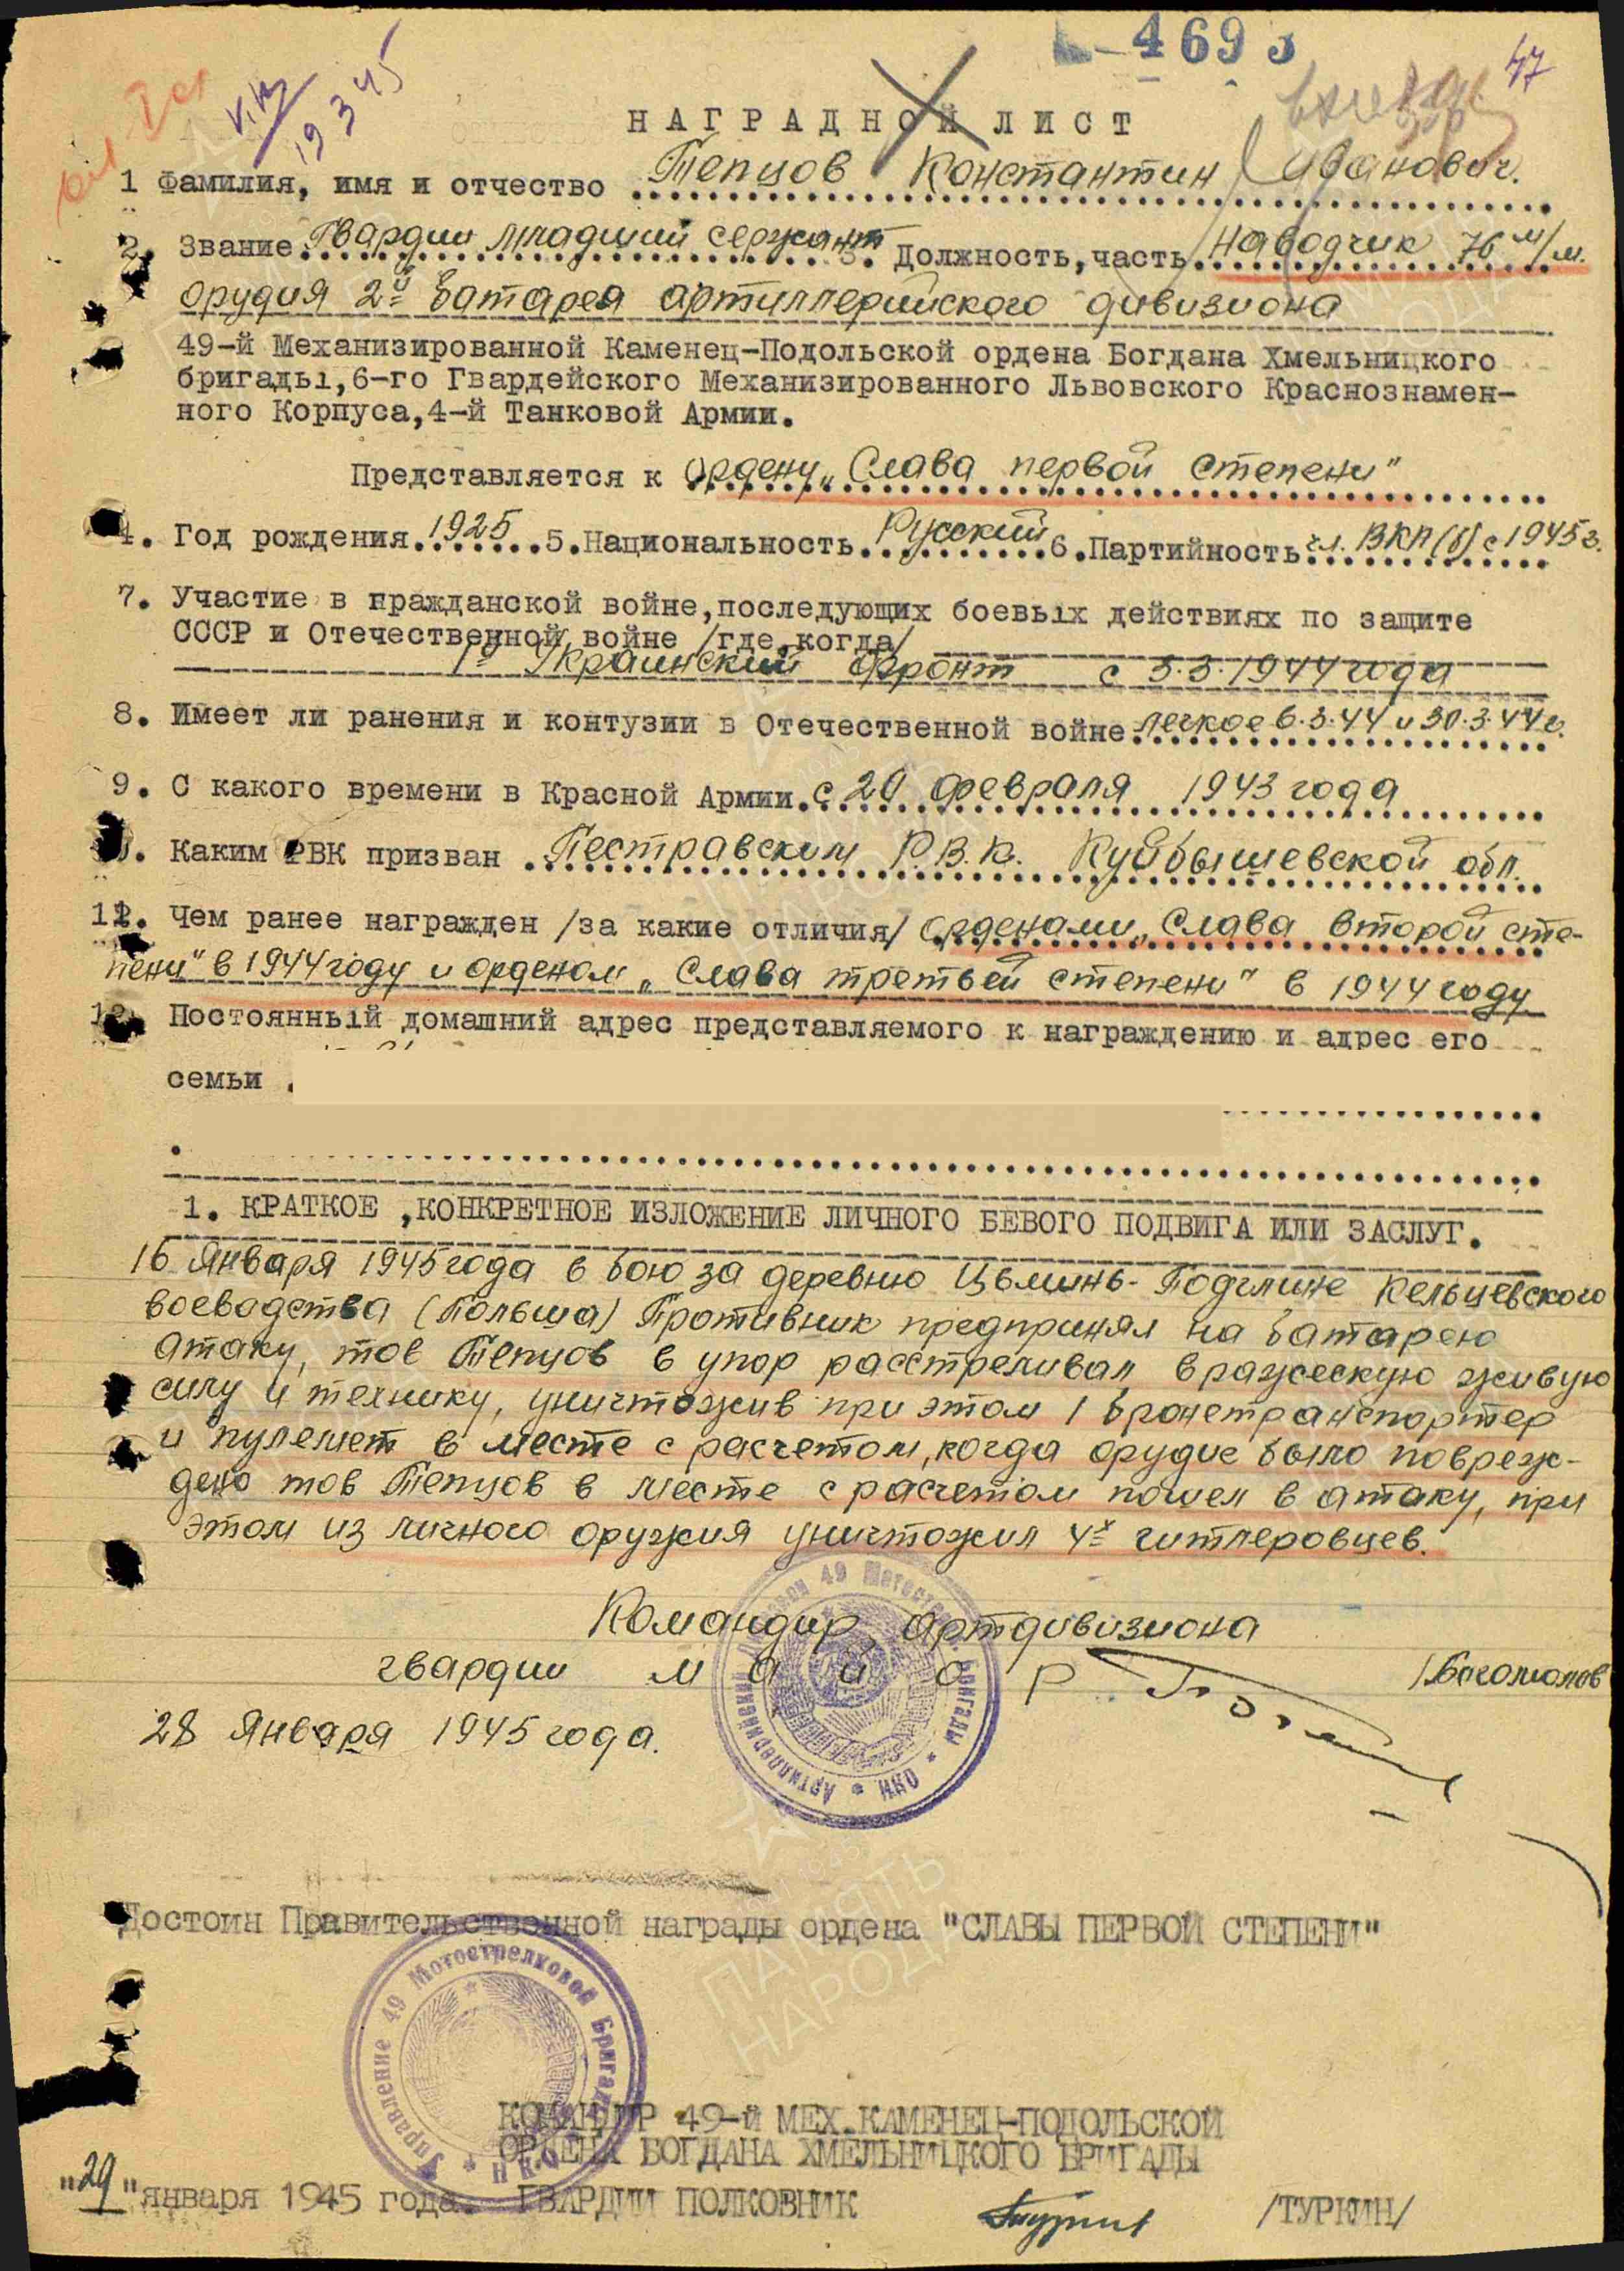 4693
47
V.К
19 3 45
НАГРАДНОЙ ЛИСТ
1 Фамилия, имя и отчество Тепцов Константин Иванович.
2. Звание Гвардии младший сержант 3. Должность, часть Наводчик 76 м/м.
орудия 2й батареа артиллерийского дивизиона
49-й Механизированной Каменец-Подольской ордена Богдана Хмельницкого
бригады, 6-го Гвардейского Механизированного Львовского Краснознамен-
ного Корпуса, 4-й Танковой Армии.
Представляется к Ордену „Слава первой степени"
4. Год рождения 1925 5. Национальность Русский 6. Партийность чл. ВКП(б) с 1945 г.
7. Участие в гражданской войне, последующих боевых действиях по защите
СССР и Отечественной войне /где, когда/
1й Украинский фронт с 5.3.1944 года
8. Имеет ли ранения и контузии в Отечественной войне легкое 6.3.44 и 30.3.44 г.
9. С какого времени в Красной Армии. с 20 февраля 1943 года
10. Каким РВК призван Пестравским Р.В.К. Куйбышевской обл.
11. Чем ранее награжден /за какие отличия/ Орденами „Слава второй сте-
пени" в 1944 году и орденом „Слава третьей степени" в 1944 году
12. Постоянный домашний адрес представляемого к награждению и адрес его
семьи
1. КРАТКОЕ ,КОНКРЕТНОЕ ИЗЛОЖЕНИЕ ЛИЧНОГО БЕВОГО ПОДВИГА ИЛИ ЗАСЛУГ.
16 Января 1945 года в бою за деревню Цьминь-Подглине Кельцевского
воеводства (Польша) Противник предпринял на батарею
атаку, тов Тепцов в упор расстреливал вражескую живую
силу и технику, уничтожив при этом 1 бронетранспортер
и пулемет в месте с расчетом, когда орудие было повреж-
дено тов Тепцов в месте с расчетом пошел в атаку, при
этом из личного оружия уничтожил 4х гитлеровцев.
Командир Артдивизиона
гвардии майор /Богомолов
28 Января 1945 года.
Артиллерийский Дивизион 49 Мотострелк. Бригады * НКО *
Достоин Правительственной награды ордена "СЛАВЫ ПЕРВОЙ СТЕПЕНИ"
Управление 49 Мотострелковой Бригады * НКО *
КОМАНДИР 49-й МЕХ. КАМЕНЕЦ-ПОДОЛЬСКОЙ
ОРДЕНА БОГДАНА ХМЕЛЬНИЦКОГО БРИГАДЫ
"29" января 1945 года. ГВАРДИИ ПОЛКОВНИК /ТУРКИН/
ПАМЯТЬ
НАРОДА